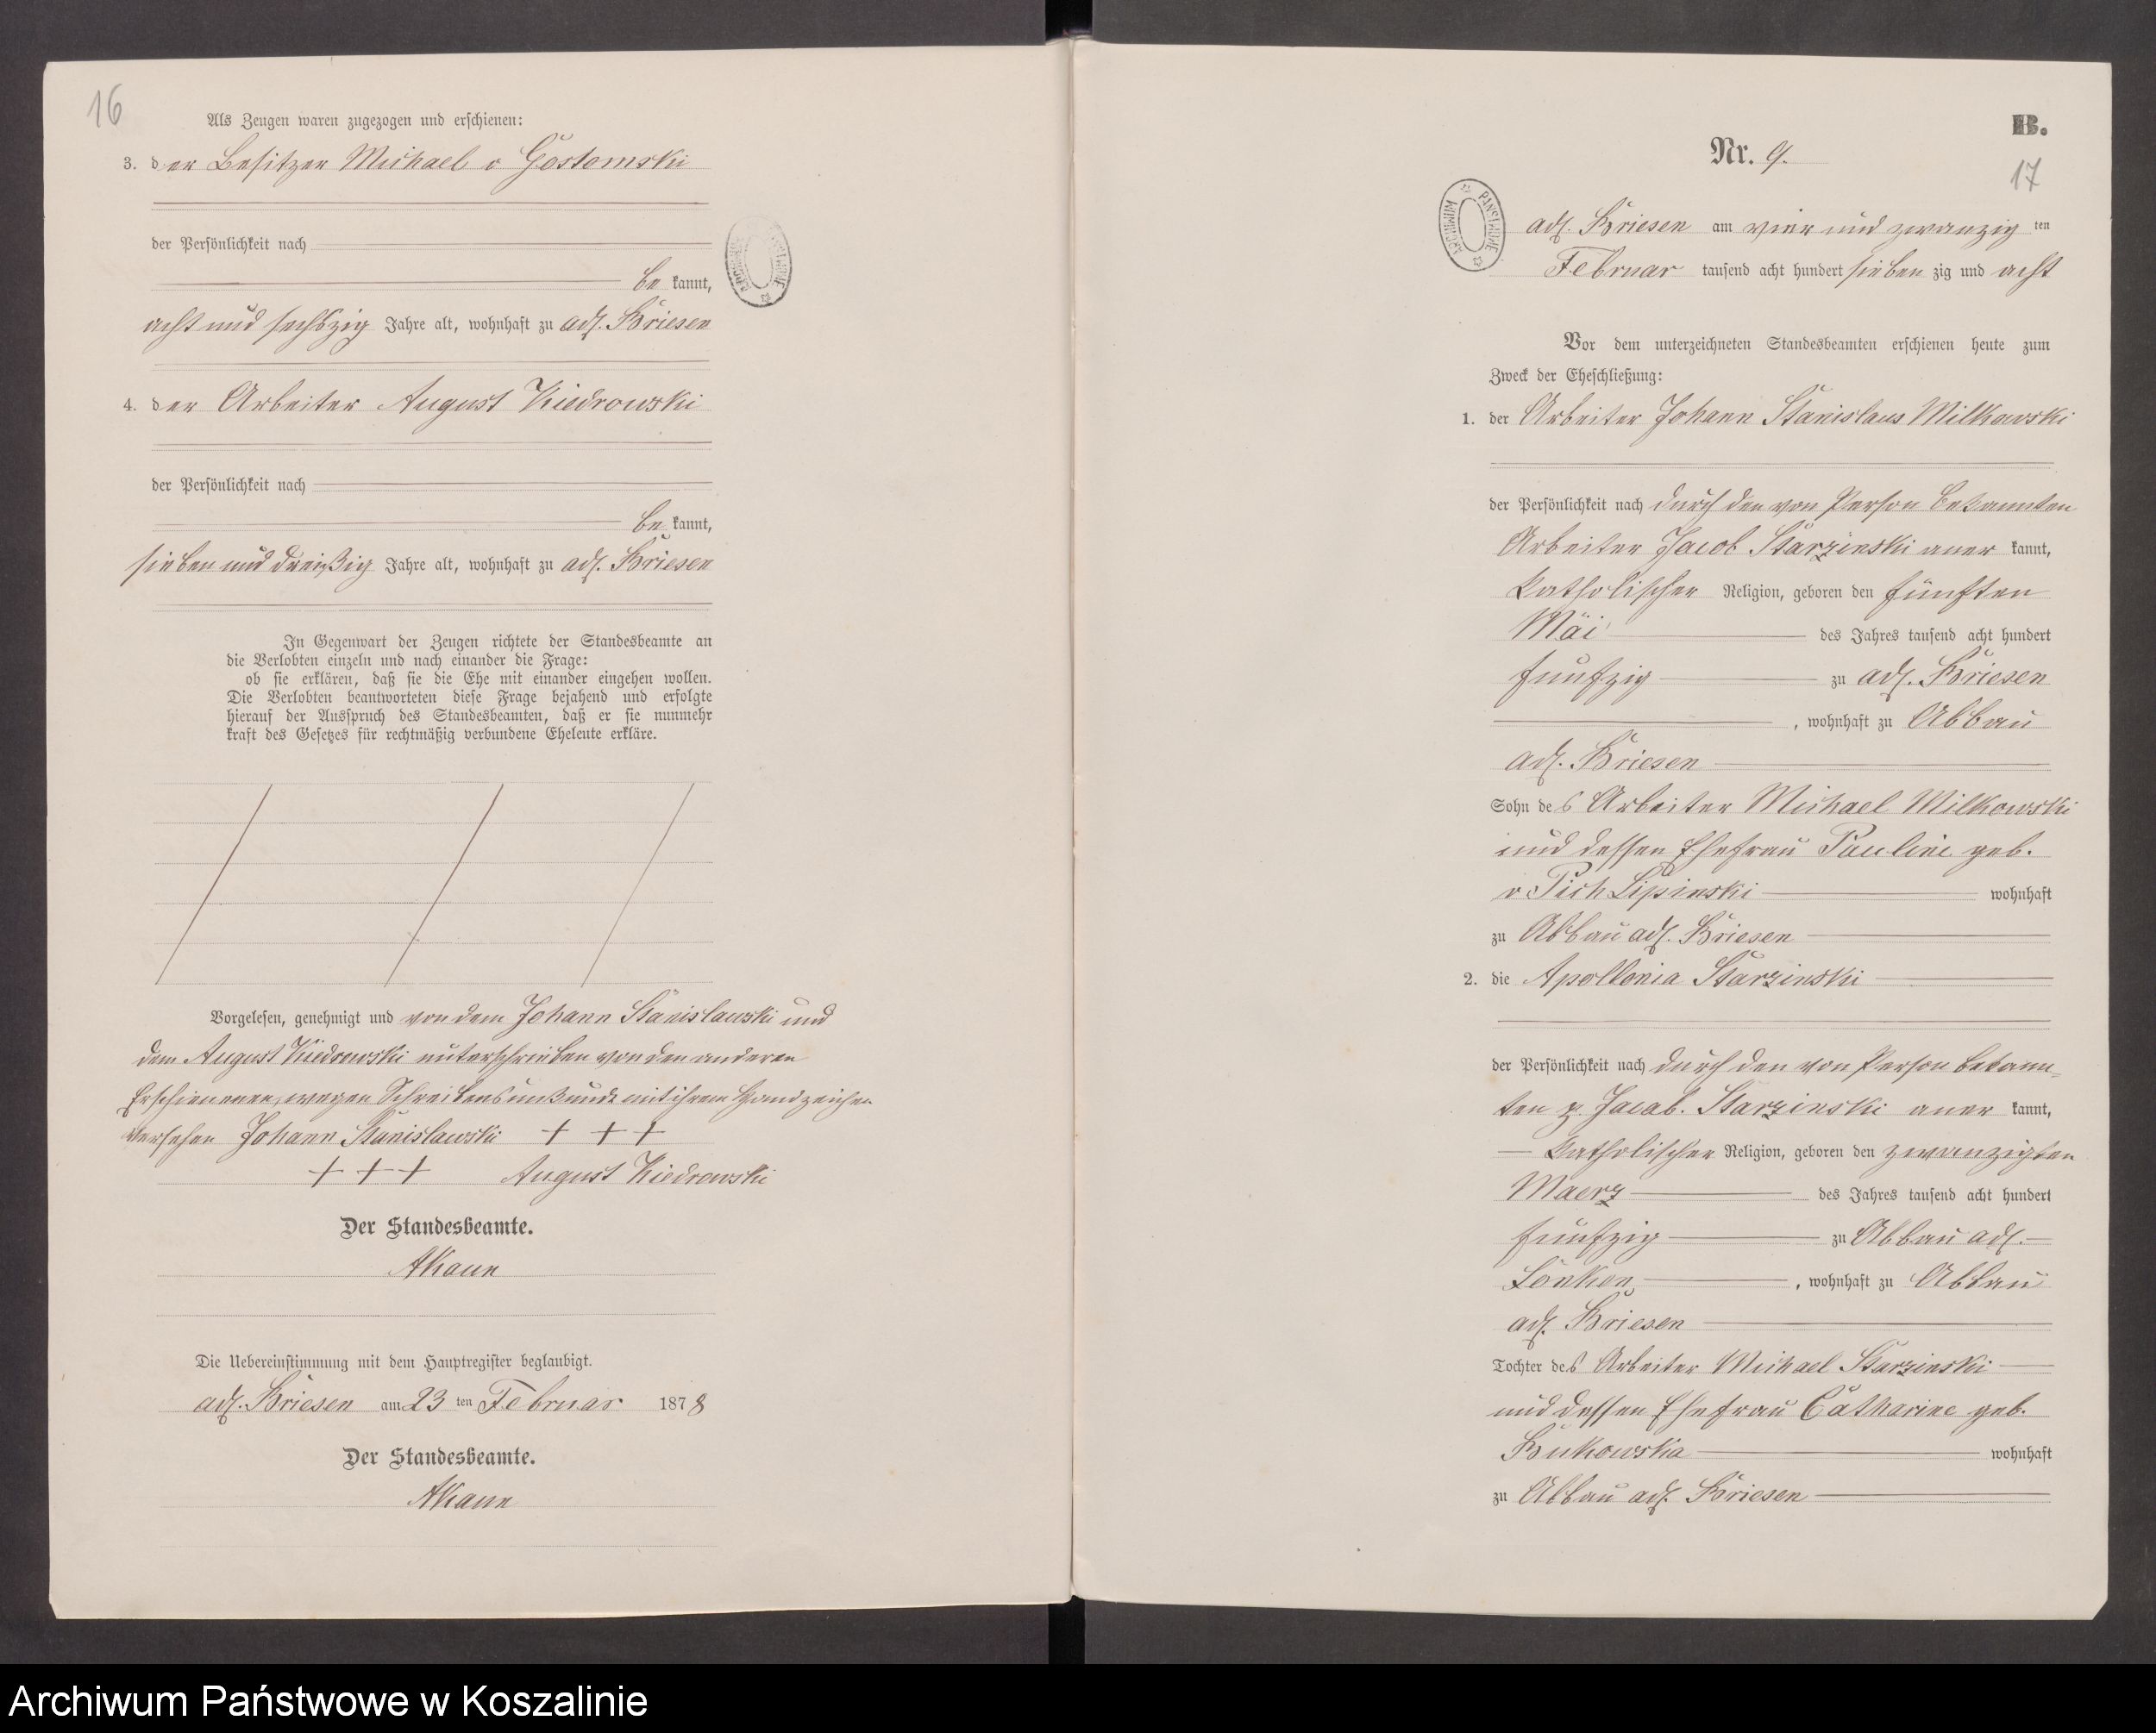 16
Als Zeugen waren zugezogen und erschienen:
3. der Besitzer Michael v Gostomski
der Persönlichkeit nach
be kannt,
acht und sechszig Jahre alt, wohnhaft zu adl. Briesen
4. der Arbeiter August Kiedrowski
der Persönlichkeit nach
be kannt,
sieben und dreißig Jahre alt, wohnhaft zu adl. Briesen
In Gegenwart der Zeugen richtete der Standesbeamte an
die Verlobten einzeln und nach einander die Frage:
ob sie erklären, daß sie die Ehe mit einander eingehen wollen.
Die Verlobten beantworteten diese Frage bejahend und erfolgte
hierauf der Ausspruch des Standesbeamten, daß er sie nunmehr
kraft des Gesetzes für rechtmäßig verbundene Eheleute erkläre.
Vorgelesen, genehmigt und von dem Johann Stanislawski und
dem August Kiedrowski unterschrieben von den anderen
Erschienenen, wegen Schreibensunkunde mit ihrem Handzeichen
versehen Johann Stanislawski + + +
+ + + August Kiedrowski
Der Standesbeamte.
AKaun
Die Uebereinstimmung mit dem Hauptregister beglaubigt.
adl. Briesen am 23 ten Februar 1878
Der Standesbeamte.
AKaun
B.
Nr. 9.
17
ARCHIWUM PAŃSTWOWE
adl. Briesen am vier und zwanzig ten
Februar tausend acht hundert sieben zig und acht
Vor dem unterzeichneten Standesbeamten erschienen heute zum
Zweck der Eheschließung:
1. der Arbeiter Johann Stanislaus Milkowski
der Persönlichkeit nach durch den von Person bekannten
Arbeiter Jacob Starzinski aner kannt,
katholischer Religion, geboren den fünften
Mai des Jahres tausend acht hundert
fünfzig zu adl. Briesen
, wohnhaft zu Abbau
adl. Briesen
Sohn des Arbeiter Michael Milkowski
und dessen Ehefrau Pauline geb.
v Pich Lipinski wohnhaft
zu Abbau adl. Briesen
2. die Apollonia Starzinski
der Persönlichkeit nach durch den von Person bekann-
ten p. Jacob. Starzinski aner kannt,
katholischer Religion, geboren den zwanzigten
Maerz des Jahres tausend acht hundert
fünfzig zu Abbau adl.
Lonken, wohnhaft zu Abbau
adl. Briesen
Tochter des Arbeiter Michael Starzinski
und dessen Ehefrau Catharine geb.
Bukowska wohnhaft
zu Abbau adl. Briesen
Archiwum Państwowe w Koszalinie